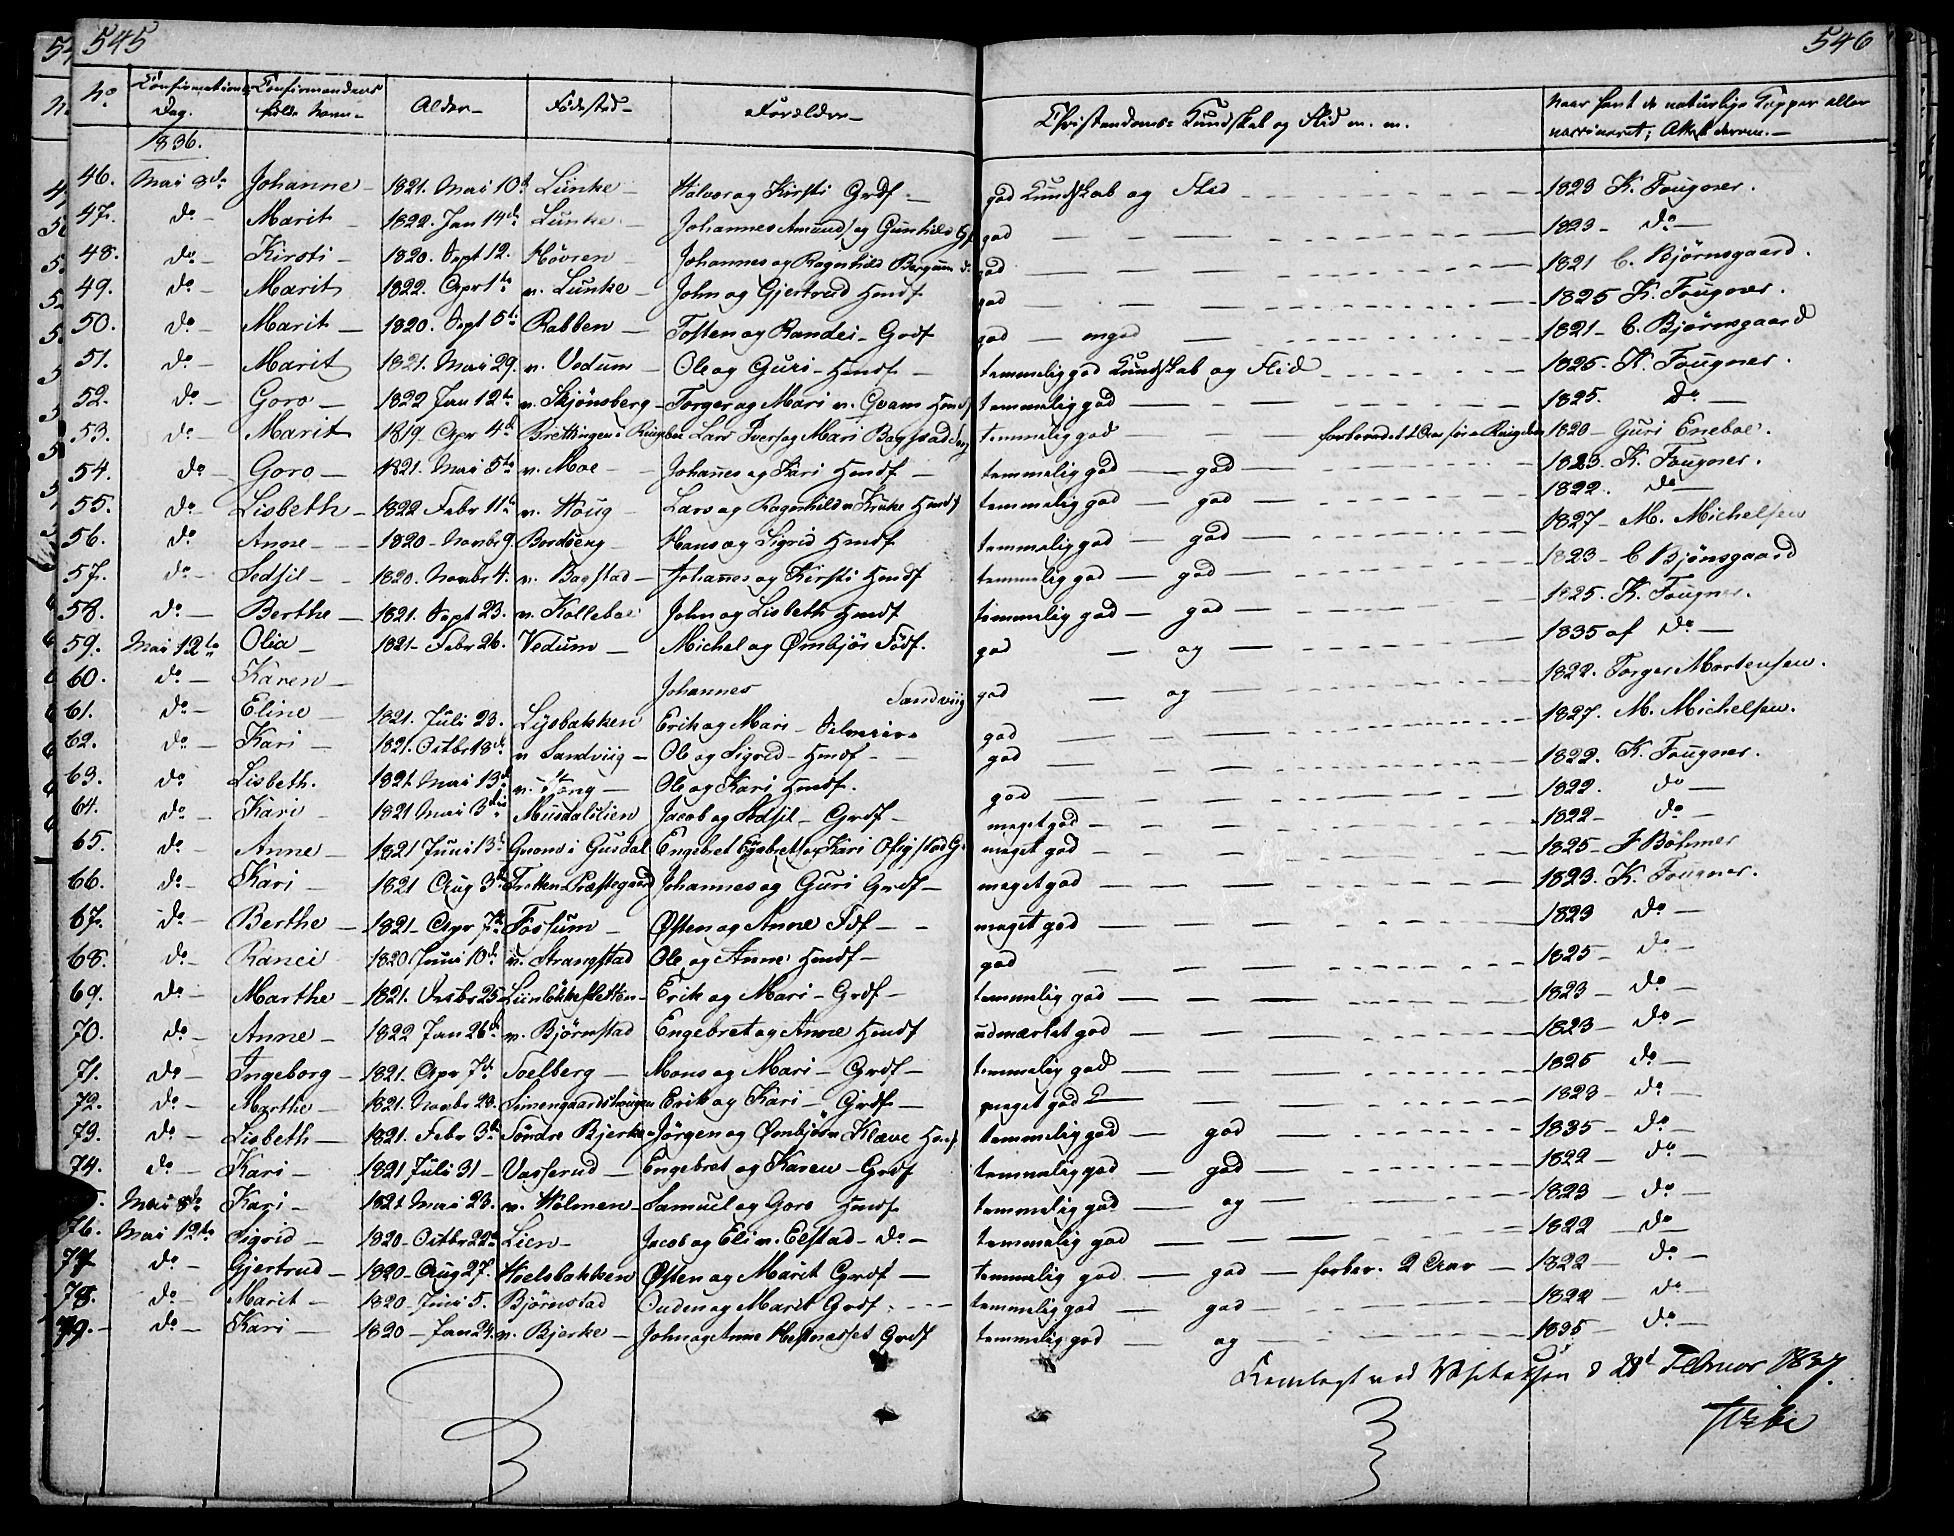 545
546
No
Confirmations Dag.
Confirmandens fulde Navn
Alder
Fødested
Forældre
Christendoms-Kundskab og Flid m. m.
Naar havt de naturlige Kopper eller vaccineret; Attest derom.
1836.
46. Mai 8de Johanne 1821. Mai 10d Lunke Halvor og Kirsti Grdf. god Kundskab og Flid 1823 K. Fougner.
47. do Marit 1822. Jan 14d Lunke Johannes Amunds og Gunhild god 1823 do
48. do Kirsti 1820. Sept 12. Høvren Johannes og Ragnhild god 1821 C. Bjørnsgaard.
49. do Marit 1822. Apr 1te n. Lunke John og Gjertrud Hmdf god 1825 K. Fougner.
50. do Marit 1820. Sept 5te Rabben Tosten og Randei Grdf god meget 1821 C. Bjørnsgaard
51. do Marit 1821. Mai 29. n. Vedum Ole og Guri Hmdf temmelig god Kundskab og Flid 1825. K. Fougner.
52. do Goro 1822 Jan 12te n. Skjønsberg Torger og Mari n. Qvam Hmdf temmelig god 1825. do
53. do Marit 1819. Apr 4d Brettingen i Ringebu Lars Ivers og Mari Bagstad temmelig god forberedet 1820 Guri Eneboe.
54. do Goro 1821. Mai 5te n. Moe Johannes og Kari Hmdf temmelig god god 1823. K. Fougner.
55. do Lisbeth 1822 Febr 11te n. Houg Lars og Ragnhild Hmdf temmelig god god 1822. do
56. do Anne 1820 Novbr 9. Bordseng Hans og Sigrid Hmdf temmelig god god 1827 M. Michelsen
57. do Sedsil 1820. Novbr 4. n. Bagstad Johannes og Kirsti Hmdf temmelig god god 1823 C Bjønsgaard
58. do Berthe 1821. Sept 23. n. Kolleboe John og Lisbeth Hmdf temmelig god god 1825. K. Fougner.
59. Mai 12te Olia 1821 Febr 26. Vedum Michel og Ømbjør Fødf. god og 1835 af do
60. do Karen Johannes Sandviig god og 1822. Torger Mortensen.
61. do Eline 1821. Juli 23. Lysbakken Erik og Mari god 1827. M. Michelsen.
62. do Kari 1821. Octbr 18d n Sandviig Ole og Sigrid Hmdf god 1822. K. Fougner.
63. do Lisbeth. 1821. Mai 13d Ole og Kari Hmdf. god 1822. do
64. do Kari 1821 Mai 3die Musdalslien Jacob og Sedsil Grdf meget god 1822 do
65. do Anne 1821 Juni 13d Qvam i Gusdal Engebret Engebrets og Kari meget god 1825 J Bøhmer
66. do Kari 1821 Aug 3d Fretten Præstegaard Johannes og Guri Grdf meget god 1823. K. Fougner.
67. do Berthe 1821 Apr 7d Fossum Østen og Anne Fdf meget god 1823 do
68. do Ranei 1820 Juni 10d n. Strangstad Ole og Anne Hmdf god 1825 do
69. do Marthe 1821. Decbr 25 Erik og Mari Grdf temmelig god 1823 do
70. do Anne 1822 Jan 26d n. Bjørnstad Engebret og Anne Hmdf udmærket god 1823 do
71. do Ingeborg 1821. Apr 7d Soelberg Mons og Mari Grdf temmelig god 1825 do
72. do Marthe 1821. Novbr 23. Simengaardshougen Erik og Kari Grdf meget god 1823 do
73. do Lisbeth 1821. Febr 3d Søndre Bjerke Jørgen og Ømbjør Kleve Hmdf temmelig god god 1835 do
74. do Kari 1821 Juli 31 Vasserud Engebret og Karen Grdf temmelig god god 1822 do
Mai 8de Kari 1821 Mai 23. n. Holmen Samuel og Goro Hmdf temmelig god og 1823 do
76. Mai 12te Sigrid 1820 Octbr 22d Lien Jacob og Eli n. Elstad do temmelig god 1822 do
77 do Gjertrud 1820 Aug 27. Hoelsbakken Østen og Marit Grdf temmelig god god forber. 2 Aar 1822 do
78. do Marit 1820 Juni 5. Bjørnstad Ouden og Marit Grdf temmelig god god 1822 do
79. do Kari 1820 Jan 24. n. Bjerke John og Anne Grdf temmelig god og 1835 do
Fremlagt ved Visitatsen d 28d Februar 1837.